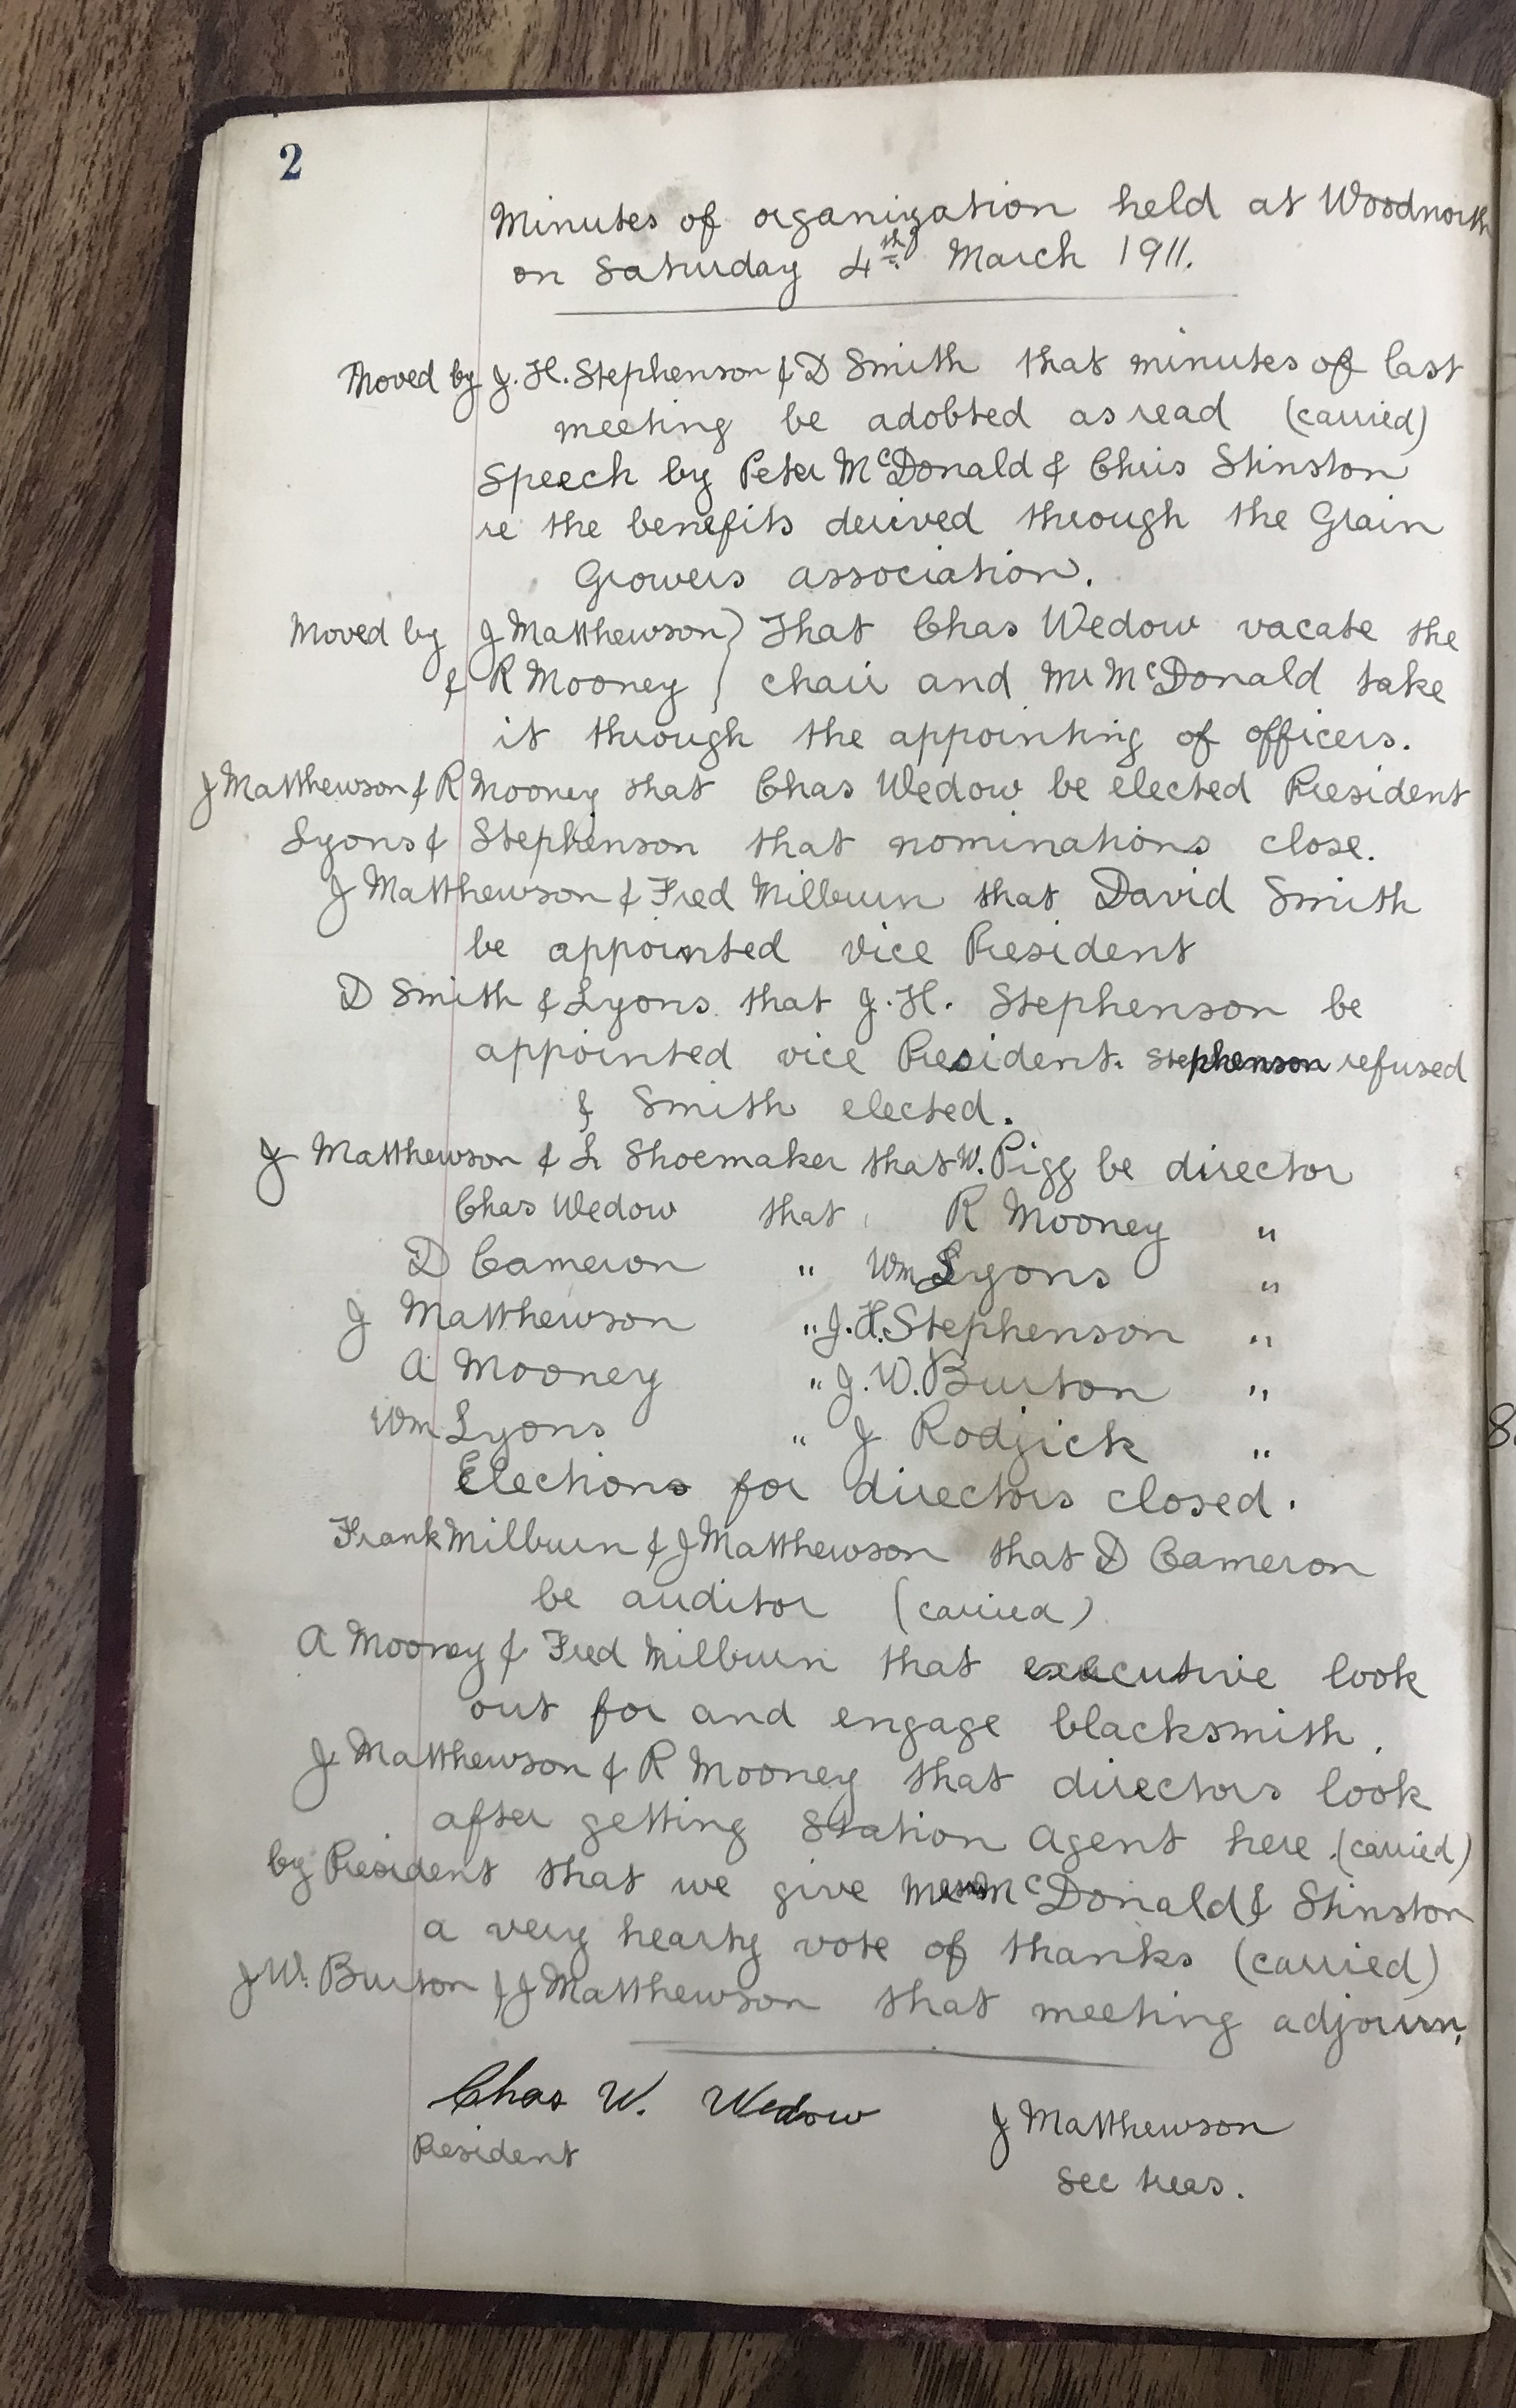 2
Minutes of organization held at Woodnorth
on Saturday 4th March 1911.
Moved by J. H. Stephenson & D Smith that minutes of last
meeting be adobted as read (carried)
Speech by Peter McDonald & Chris Stinston
re the benefits derived through the Grain
Growers association.
Moved by J Matthewson } That Chas Wedow vacate the
& R Mooney } chair and Mr McDonald take
it through the appointing of officers.
J Matthewson & R Mooney that Chas Wedow be elected President
Lyons & Stephenson that nominations close.
J Matthewson & Fred Milburn that David Smith
be appointed vice President
D Smith & Lyons that J. H. Stephenson be
appointed vice President. Stephenson refused
& Smith elected.
J Matthewson & L Shoemaker that W. Pigg be director
Chas Wedow that R Mooney "
D Cameron " Wm Lyons "
J Matthewson " J. H. Stephenson "
A Mooney " J. W. Burton "
Wm Lyons " J Rodjick "
Elections for directors closed.
Frank Milburn & J Matthewson that D Cameron
be auditor (carried)
A Mooney & Fred Milburn that executive look
out for and engage blacksmith.
J Matthewson & R Mooney that directors look
after getting Station Agent here. (carried)
by President that we give McDonald & Stinston
a very hearty vote of thanks (carried)
J W. Burton & J Matthewson that meeting adjourn.
Chas W. Wedow J Matthewson
President Sec treas.
8